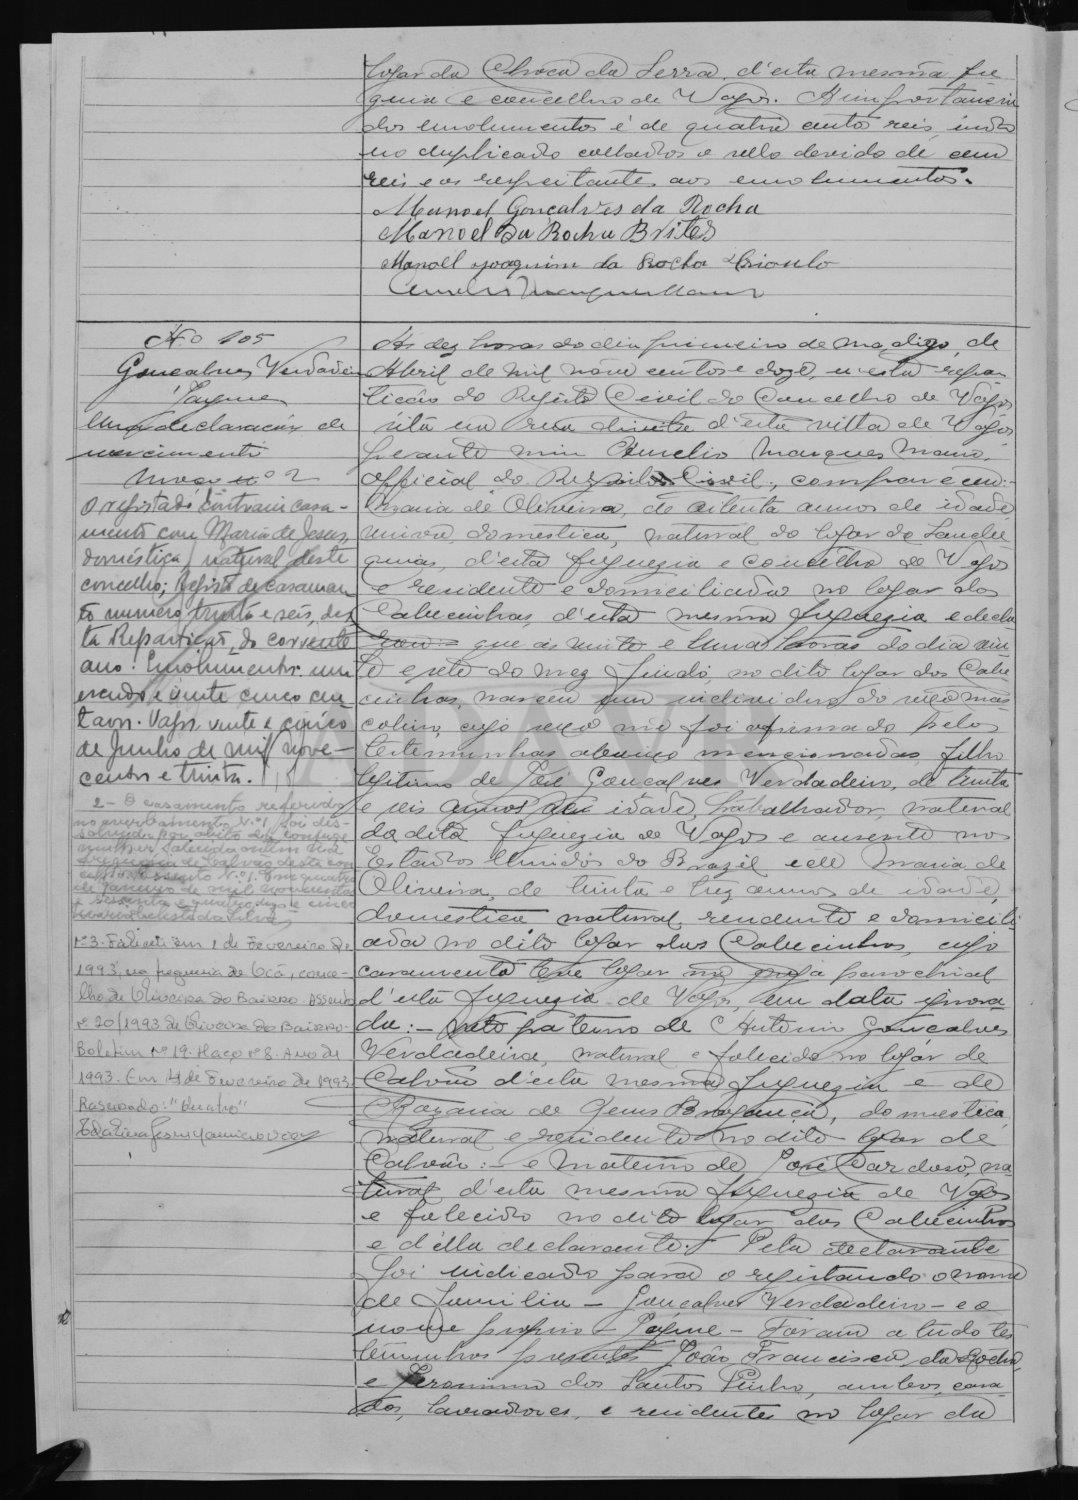 logar da Choca da Serra, d'esta mesma fre
guesia e concelho de Vagos. A importancia
dos emolumentos é de quatro centos reis, indo
no duplicado collados o sello devido de cem
reis e os respeitantes aos emolumentos.
Manoel Gonçalves da Rocha
Manoel da Rocha Brites
Manoel Joaquim da Rocha
No 105
Gonçalves Verdadeiro
Jayme
declaração de
nascimento
Maço nº 2
O registado contraiu casa-
mento com Maria de Jesus,
doméstica, natural deste
concelho; Registo de casamen
to numero trinta e seis, des
ta Repartição, do corrente
ano. Emolumentos um
escudo e vinte cinco cen
tavos. Vagos, vinte e cinco
de Junho de mil nove-
centos e trinta.
2- O casamento referido
no averbamento N.º 1 foi dis-
solvido por obito do conjuge
mulher falecida ontem na
freguesia de Calvão deste con
celho. Assento N.º 1. Em quatro
de Janeiro de mil novecentos
e sessenta e quatro
nº 3. Faleceu em 1 de Fevereiro de
1993, na freguesia de Oiã, conce-
lho de Oliveira do Bairro. Assento
nº 20/1993 de Oliveira do Bairro.
Boletim nº 19. Maço nº 8. Ano de
1993. Em 4 de Fevereiro de 1993.
Rasurado: "quatro"
As dez horas do dia primeiro de mez digo, de
Abril de mil nove centos e doze, n'esta repar
tição do Registo Civil do Concelho de Vagos
sita na rua direita d'esta villa de Vagos,
perante mim Aurelio Marques Mano,
official do Registo Civil, compareceu:-
Maria de Oliveira, de oitenta annos de idade,
viuva, domestica, natural do logar do
d'esta freguezia e concelho de Vagos
e residente e domiciliada no logar dos
Cabecinhos, d'esta mesma freguezia e decla
rou:- que ás vinte e uma horas do dia vin
te e sete do mez findo, no dito logar dos Cabe
cinhos, nasceu um individuo do sexo mas
colino, cujo sexo me foi afirmado pelas
testemunhas abaixo mencionadas, filho
legitimo de José Gonçalves Verdadeiro, de trinta
e seis annos de idade, trabalhador, natural
da dita freguezia de Vagos e ausente nos
Estados Unidos do Brazil e de Maria de
Oliveira, de trinta e trez annos de idade,
domestica, natural, residente e domicili
ada no dito logar dos Cabecinhos, cujo
casamento teve logar na igreja parochial
d'esta freguezia de Vagos, em data ignora
da:- neto paterno de Antonio Gonçalves
Verdadeiro, natural e falecido no logar de
Calvão d'esta mesma freguezia e de
Rozaria de Jesus Bragança, domestica,
natural e residente no dito logar de
Calvão:- e materno de José Cardoso, na
tural d'esta mesma freguezia de Vagos
e falecido no dito logar dos Cabecinhos
e d'ella declarante:- Pela declarante
foi indicado para o registando o nome
de familia - Gonçalves Verdadeiro - e o
nome proprio - Jayme - Foram a tudo tes
temunhas presentes João Francisco da Rocha,
e Jeronimo dos Santos Pinho, ambos, casa
dos, lavradores, e residentes no logar da